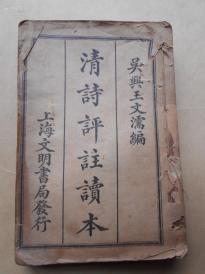 吳興王文濡編
清詩評註讀本
上海文明書局發行